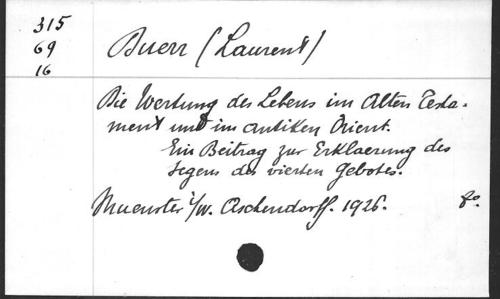 315
69
16
Buerr (Laurent)
Die Wertung des Lebens im Alten Testa-
ment und im antiken Orient.
Ein Beitrag zur Erklaerung des
Segens des vierten Gebotes.
Muenster i/w. Aschendorff. 1926. f°.